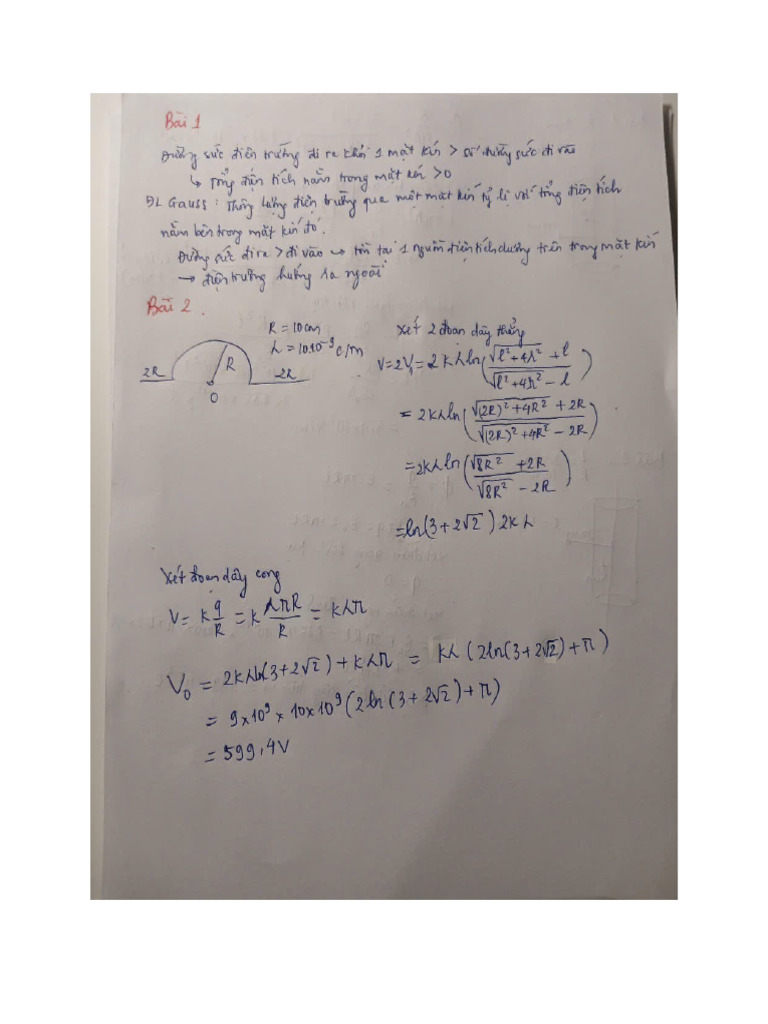 Bài 1
Đường sức điện trường đi ra khỏi 1 mặt kín > số đường sức đi vào
↳ Tổng điện tích nằm trong mặt kín >0
ĐL Gauss: Thông lượng điện trường qua một mặt kín tỷ lệ với tổng điện tích
nằm bên trong mặt kín đó.
Đường sức đi ra > đi vào → tồn tại 1 nguồn điện tích dương bên trong mặt kín
→ điện trường hướng ra ngoài
Bài 2.
R = 10cm
λ = 10.10⁻⁹ C/m
2R R 2R
O
Xét 2 đoạn dây thẳng
V = 2V₁ = 2kλln(√(l²+4R²) + l / √(l²+4R²) - l)
= 2kλln(√((2R)²+4R²) + 2R / √((2R)²+4R²) - 2R)
= 2kλln(√(8R²) + 2R / √(8R²) - 2R)
= ln(3+2√2) 2kλ
Xét đoạn dây cong
V = k q/R = k λπR/R = kλπ
V₀ = 2kλln(3+2√2) + kλπ = kλ(2ln(3+2√2)+π)
= 9×10⁹ × 10×10⁹(2ln(3+2√2)+π)
= 599,4V